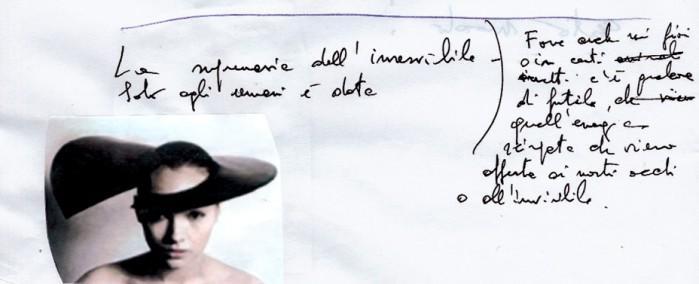 La supremazia dell'invisibile
Solo agli umani è data
Forse anche nei fiori
o in certi
insetti c'è qualcosa
di futile, che
quell'energia
che viene
offerta ai nostri occhi
o all'invisibile.